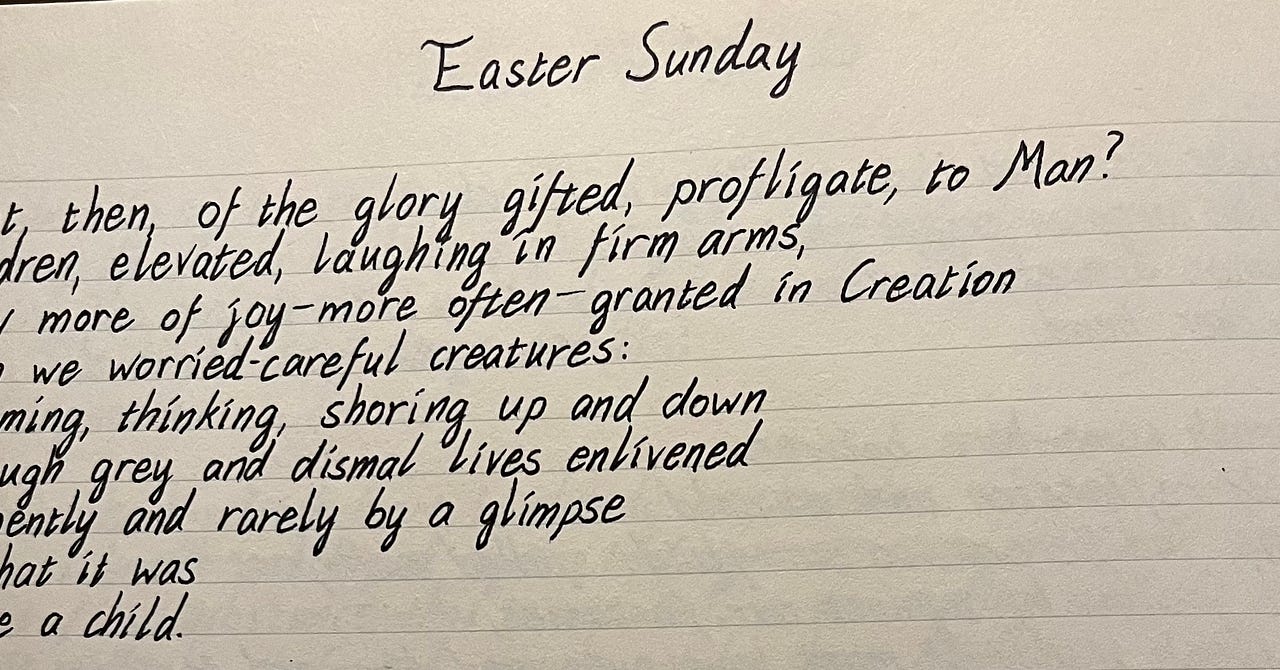 Easter Sunday
t, then, of the glory gifted, profligate, to Man?
dren, elevated, laughing in firm arms,
y more of joy-more often-granted in Creation
we worried-careful creatures:
ming, thinking, shoring up and down
ugh grey and dismal lives enlivened
ently and rarely by a glimpse
hat it was
e a child.